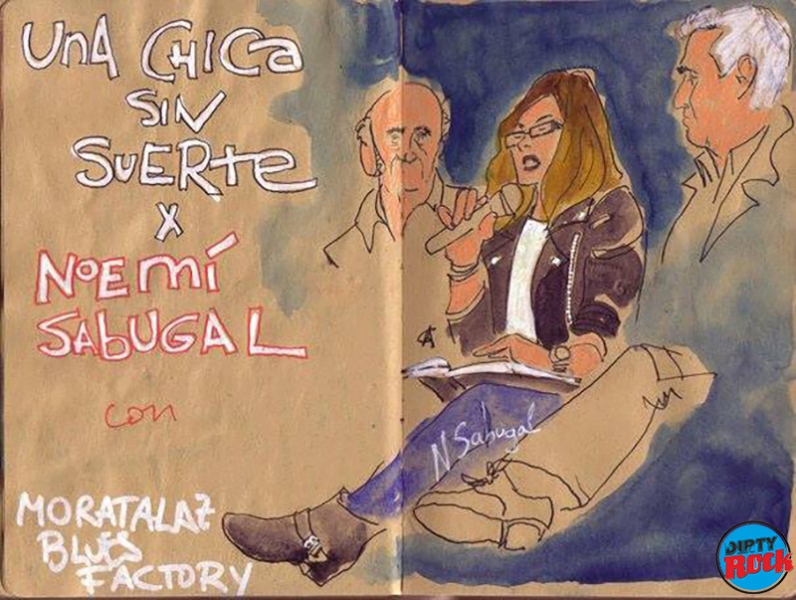 UNA CHICA
SIN
SUERTE
X
NOEMÍ
SABUGAL
con
MORATALAZ
BLUES
FACTORY
N Sabugal
DIRTY
ROCK